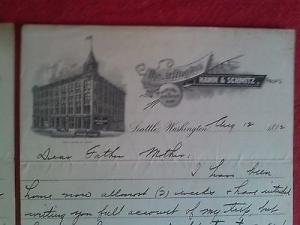 HAMM & SCHMITZ, PROPS
Seattle, Washington, Aug 12 18
Dear Father Mother:
I have been
home now almost (2) weeks & have intended
writing you full account of my trip, but